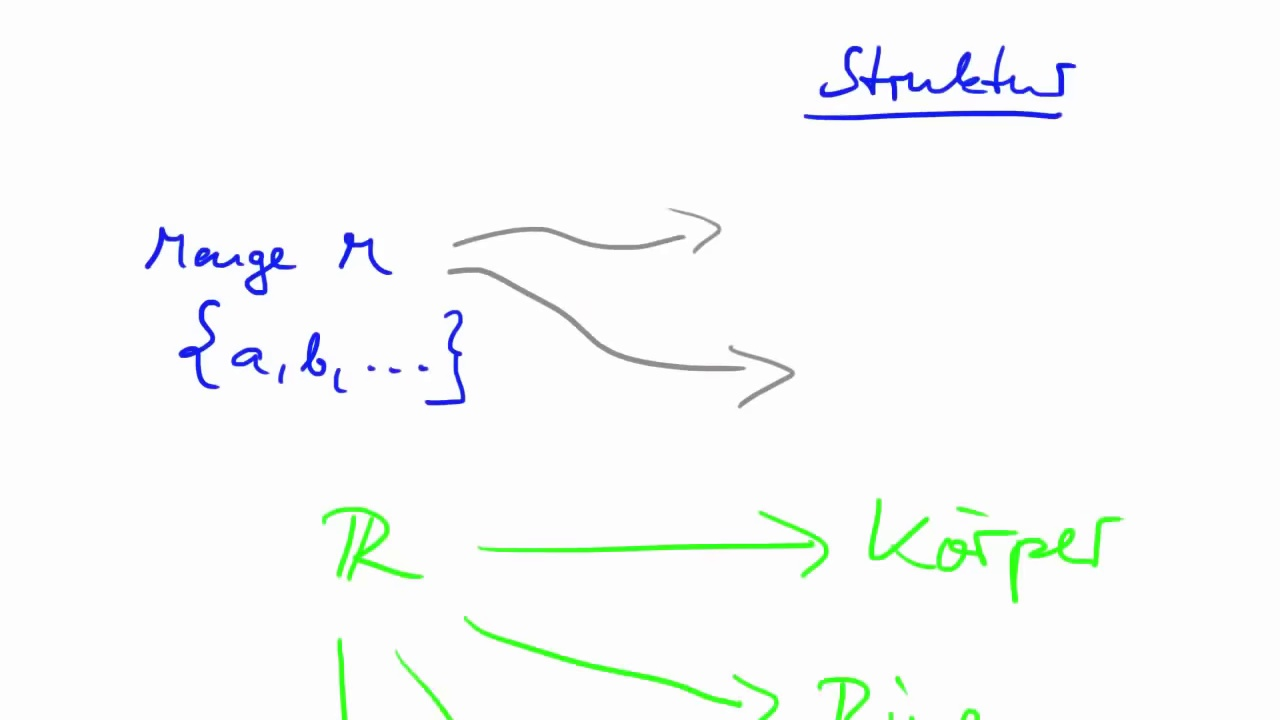 Struktur
Menge M
{a, b, ...}
ℝ
Körper